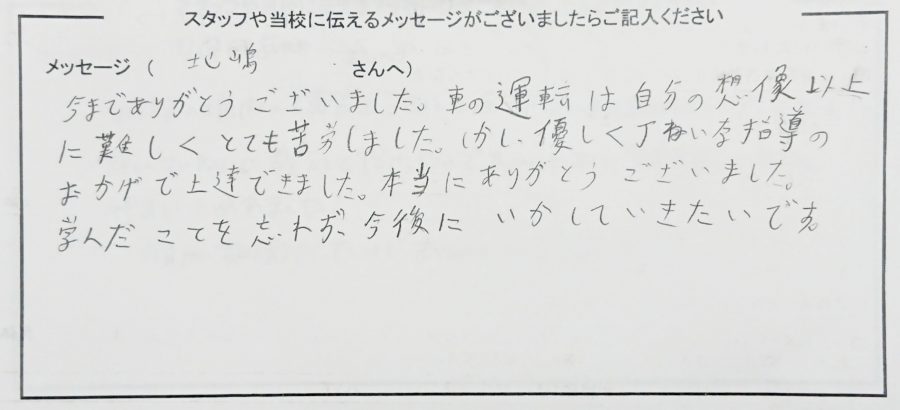 スタッフや当校に伝えるメッセージがございましたらご記入ください
メッセージ（ 地嶋 さんへ）
今までありがとうございました。車の運転は自分の想像以上
に難しくとても苦労しました。しかし、優しく丁ねいな指導の
おかげで上達できました。本当にありがとうございました。
学んだことを忘れず、今後にいかしていきたいです。